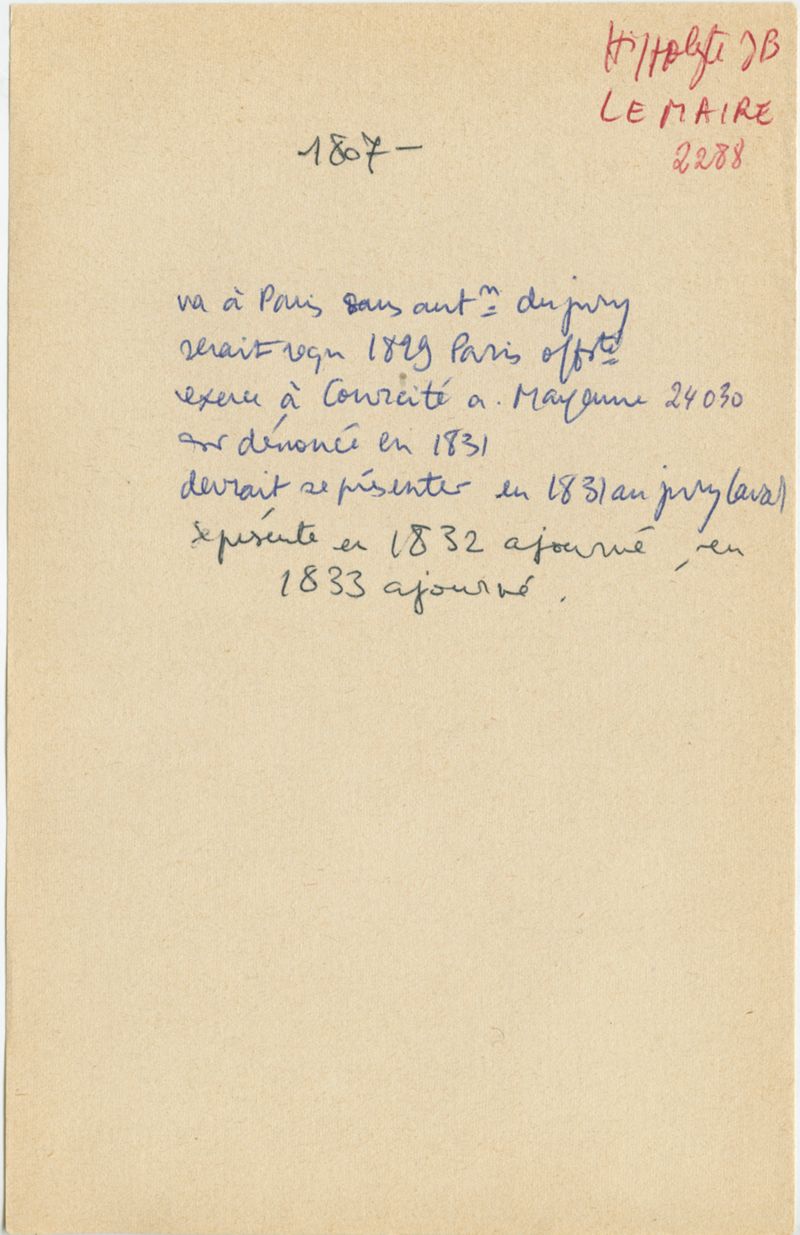 Hippolyte JB
LEMAIRE
2288
1807 -
va à Paris sans autn du jury
serait reçu 1829 Paris offté
exerce à Courcité a. Mayenne 24030
dénoncé en 1831
devrait se présenter en 1831 au jury Laval
se présente en 1832 ajourné, en
1833 ajourné.